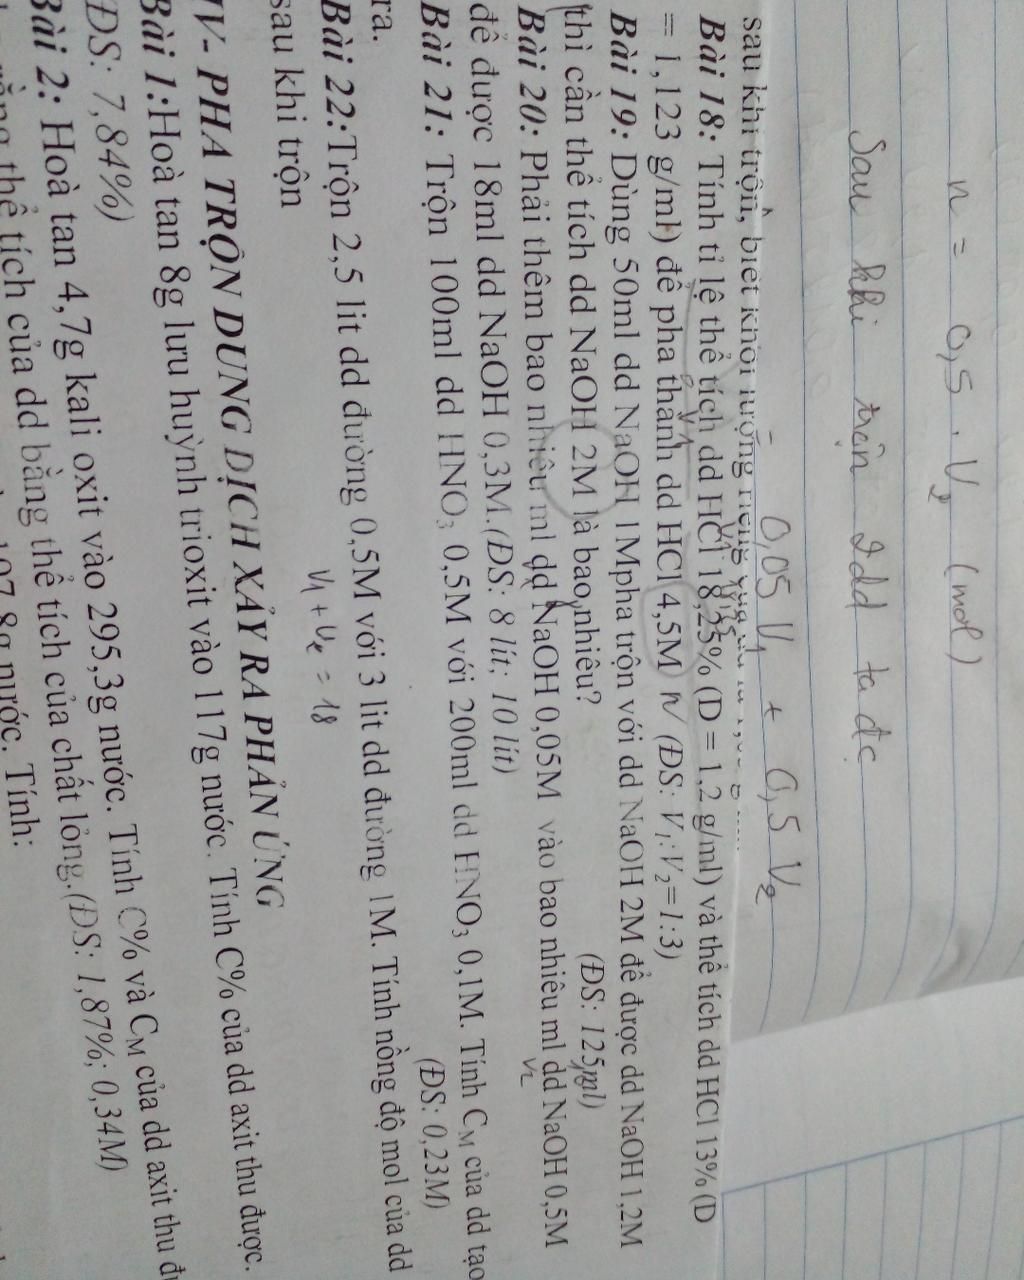 n = 0,5 . V₂ (mol)
Sau khi trộn 2dd ta đc
0,05 V₁ + 0,5 V₂
sau khi trộn, biết khối lượng riêng
Bài 18: Tính tỉ lệ thể tích dd HCl 18,25% (D = 1,2 g/ml) và thể tích dd HCl 13% (D
= 1,123 g/ml) để pha thành dd HCl 4,5M (ĐS: V₁:V₂=1:3)
Bài 19: Dùng 50ml dd NaOH 1Mpha trộn với dd NaOH 2M để được dd NaOH 1,2M
thì cần thể tích dd NaOH 2M là bao nhiêu? (ĐS: 125ml)
Bài 20: Phải thêm bao nhiêu ml dd NaOH 0,05M vào bao nhiêu ml dd NaOH 0,5M
V₂
để được 18ml dd NaOH 0,3M.(ĐS: 8 lít; 10 lít)
Bài 21: Trộn 100ml dd HNO₃ 0,5M với 200ml dd HNO₃ 0,1M. Tính CM của dd tạo
ra. (ĐS: 0,23M)
V₁ + V₂ = 18
Bài 22:Trộn 2,5 lit dd đường 0,5M với 3 lit dd đường 1M. Tính nồng độ mol của dd
sau khi trộn
IV- PHA TRỘN DUNG DỊCH XẢY RA PHẢN ỨNG
Bài 1:Hoà tan 8g lưu huỳnh trioxit vào 117g nước. Tính C% của dd axit thu được.
ĐS: 7,84%)
Bài 2: Hoà tan 4,7g kali oxit vào 295,3g nước. Tính C% và CM của dd axit thu
thể tích của dd bằng thể tích của chất lỏng.(ĐS: 1,87%; 0,34M)
nước. Tính: